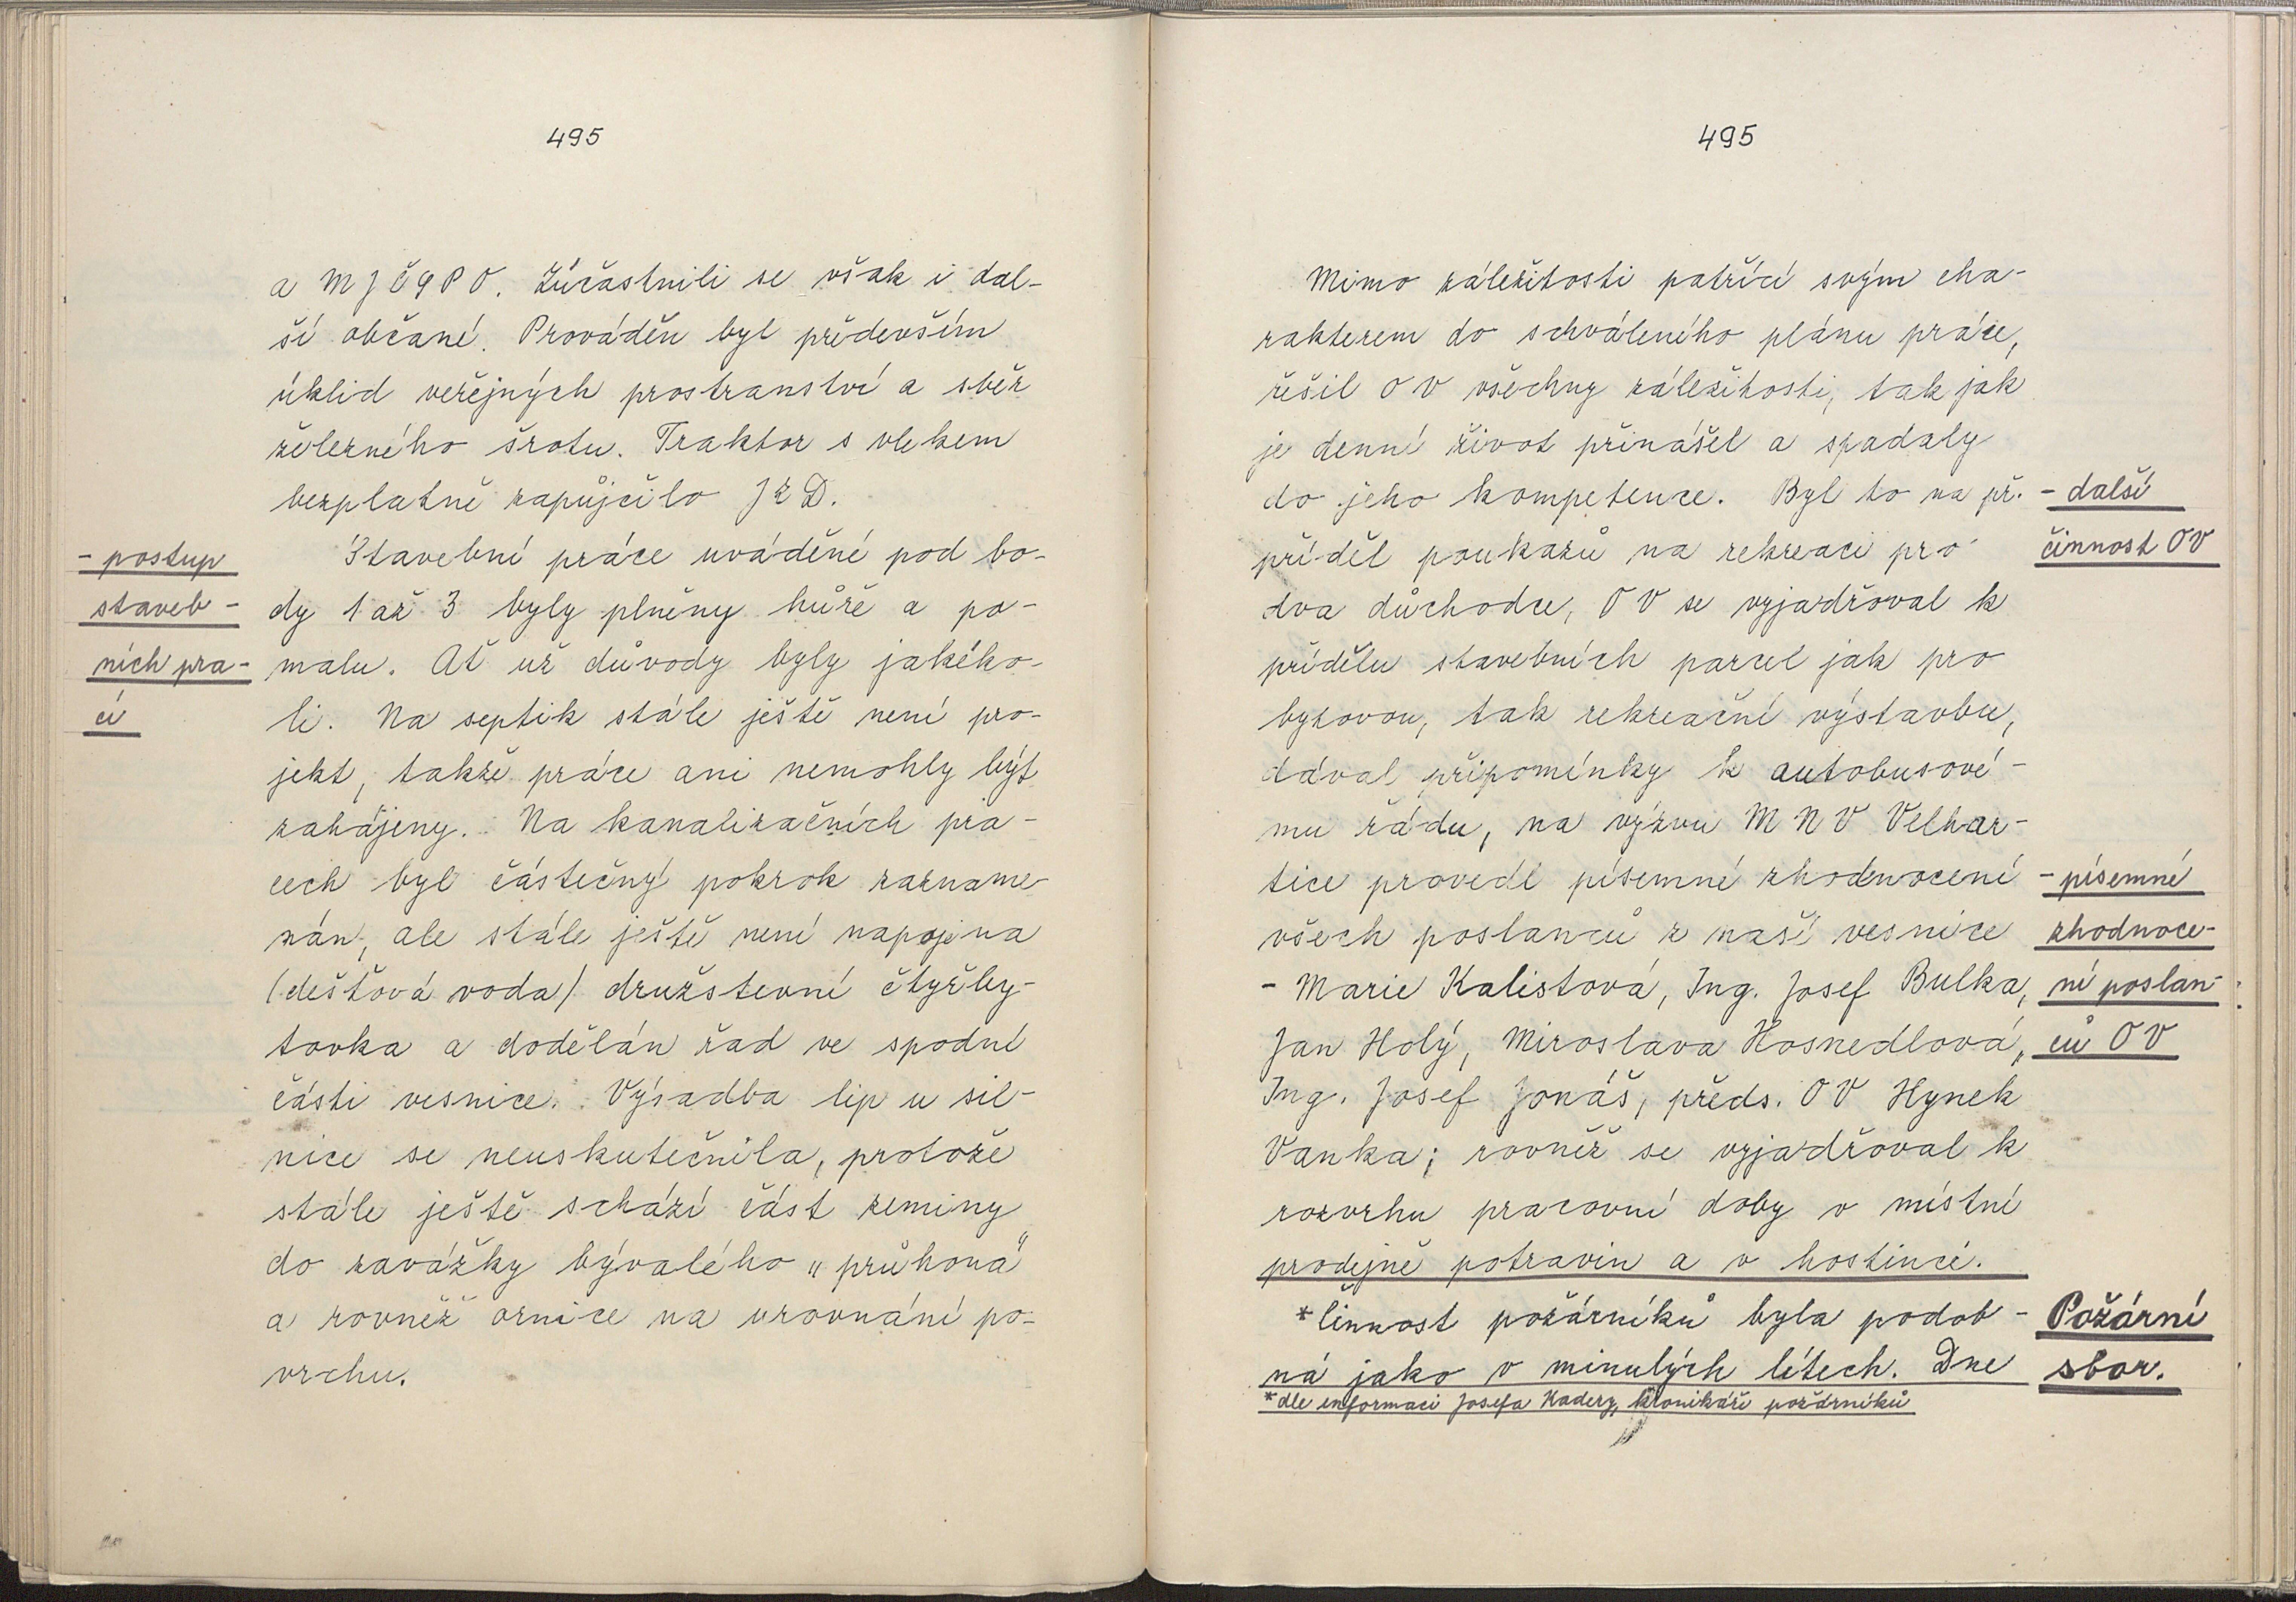 495
a MJČSPO. Zúčastnili se však i dal-
ší občané. Prováděn byl především
úklid veřejných prostranství a sběr
železného šrotu. Traktor s vlekem
bezplatně zapůjčilo JZD.
- postup
staveb-
ních pra-
cí
Stavební práce uváděné pod bo-
dy 1 až 3 byly plněny hůře a po-
malu. Ať už důvody byly jakéko-
li. Na septik stále ještě není pro-
jekt, takže práce ani nemohly být
zahájeny. Na kanalizačních pra-
cech byl částečný pokrok zazname-
nán, ale stále ještě není napojena
(dešťová voda) družstevní čtyřby-
tovka a dodělán řad ve spodní
části vesnice. Výsadba lip u sil-
nice se neuskutečnila, protože
stále ještě schází část zeminy
do zavážky bývalého „průhona"
a rovněž ornice na urovnání po-
vrchu.
495
Mimo záležitosti patřící svým cha-
rakterem do schváleného plánu práce,
řešil OV všechny záležitosti, tak jak
je denní život přinášel a spadaly
do jeho kompetence. Byl to na př.
příděl poukazů na rekreaci pro
dva důchodce, OV se vyjadřoval k
přídělu stavebních parcel jak pro
bytovou, tak rekreační výstavbu,
dával připomínky k autobusové-
mu řádu, na výzvu MNV Velhar-
tice provedl písemné zhodnocení
všech poslanců z naší vesnice
- Marie Kalistová, Ing. Josef Bulka,
Jan Holý, Miroslava Hosnedlová,
Ing. Josef Jonáš, předs. OV Hynek
Vaňka; rovněž se vyjadřoval k
rozvrhu pracovní doby v místní
prodejně potravin a v hostinci.
- další
činnost OV
- písemné
zhodnoce-
ní poslan-
ců OV
*Činnost požárníků byla podob-
ná jako v minulých létech. Dne
Požární
sbor.
*dle informací Josefa Kadery, kronikáře požárníků